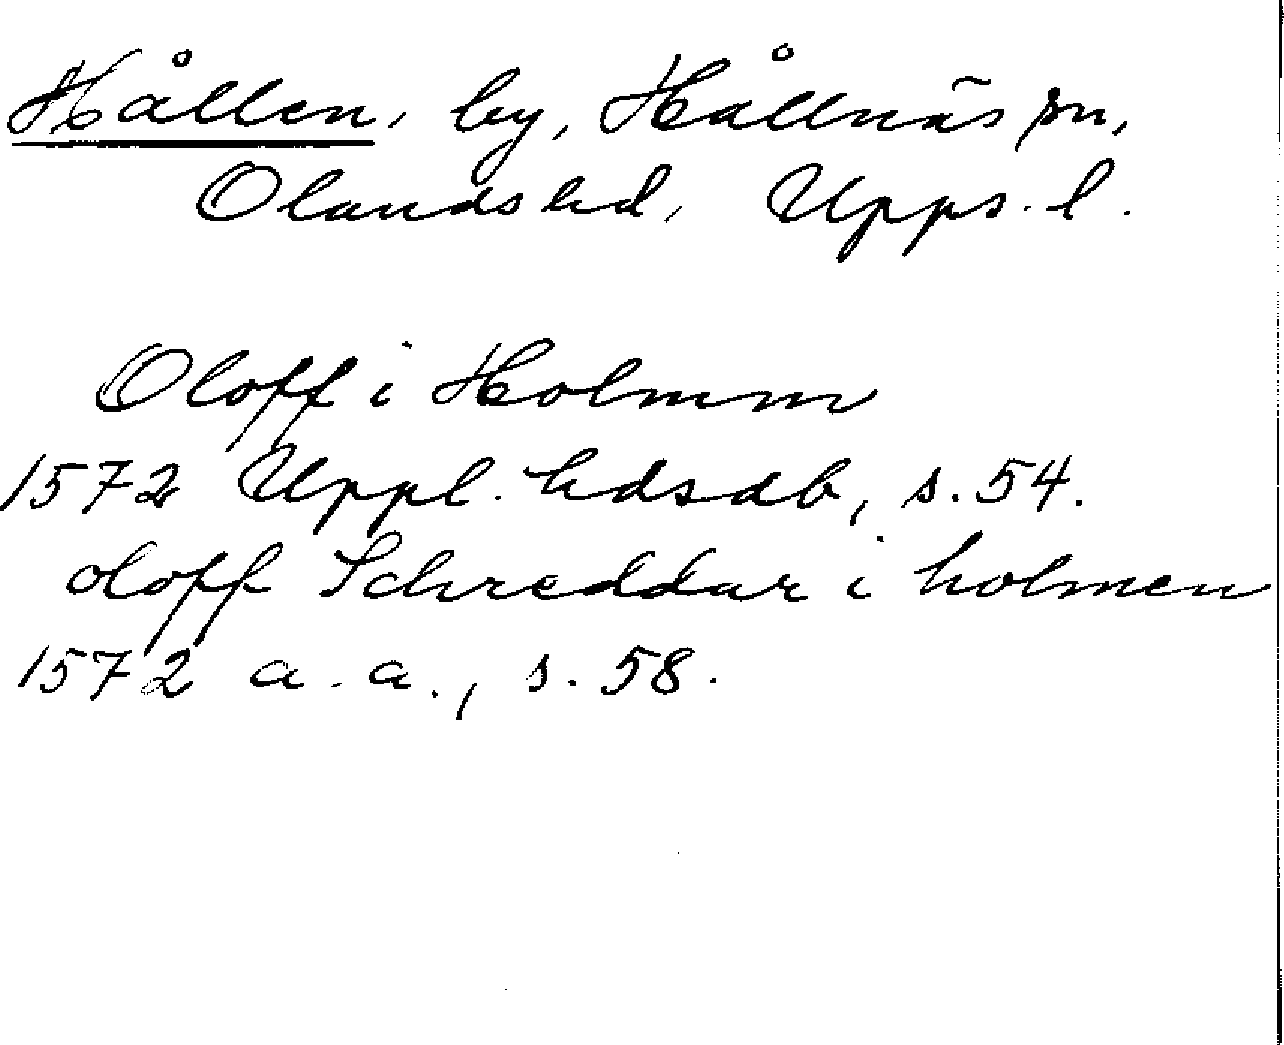 Hållen, by, Hållnäs sn,
Olands hd, Upps. l.
Oloff i Holmm
1572 Uppl. hdsdb, s. 54.
oloff Schreddar i holmen
1572 a. a., s. 58.